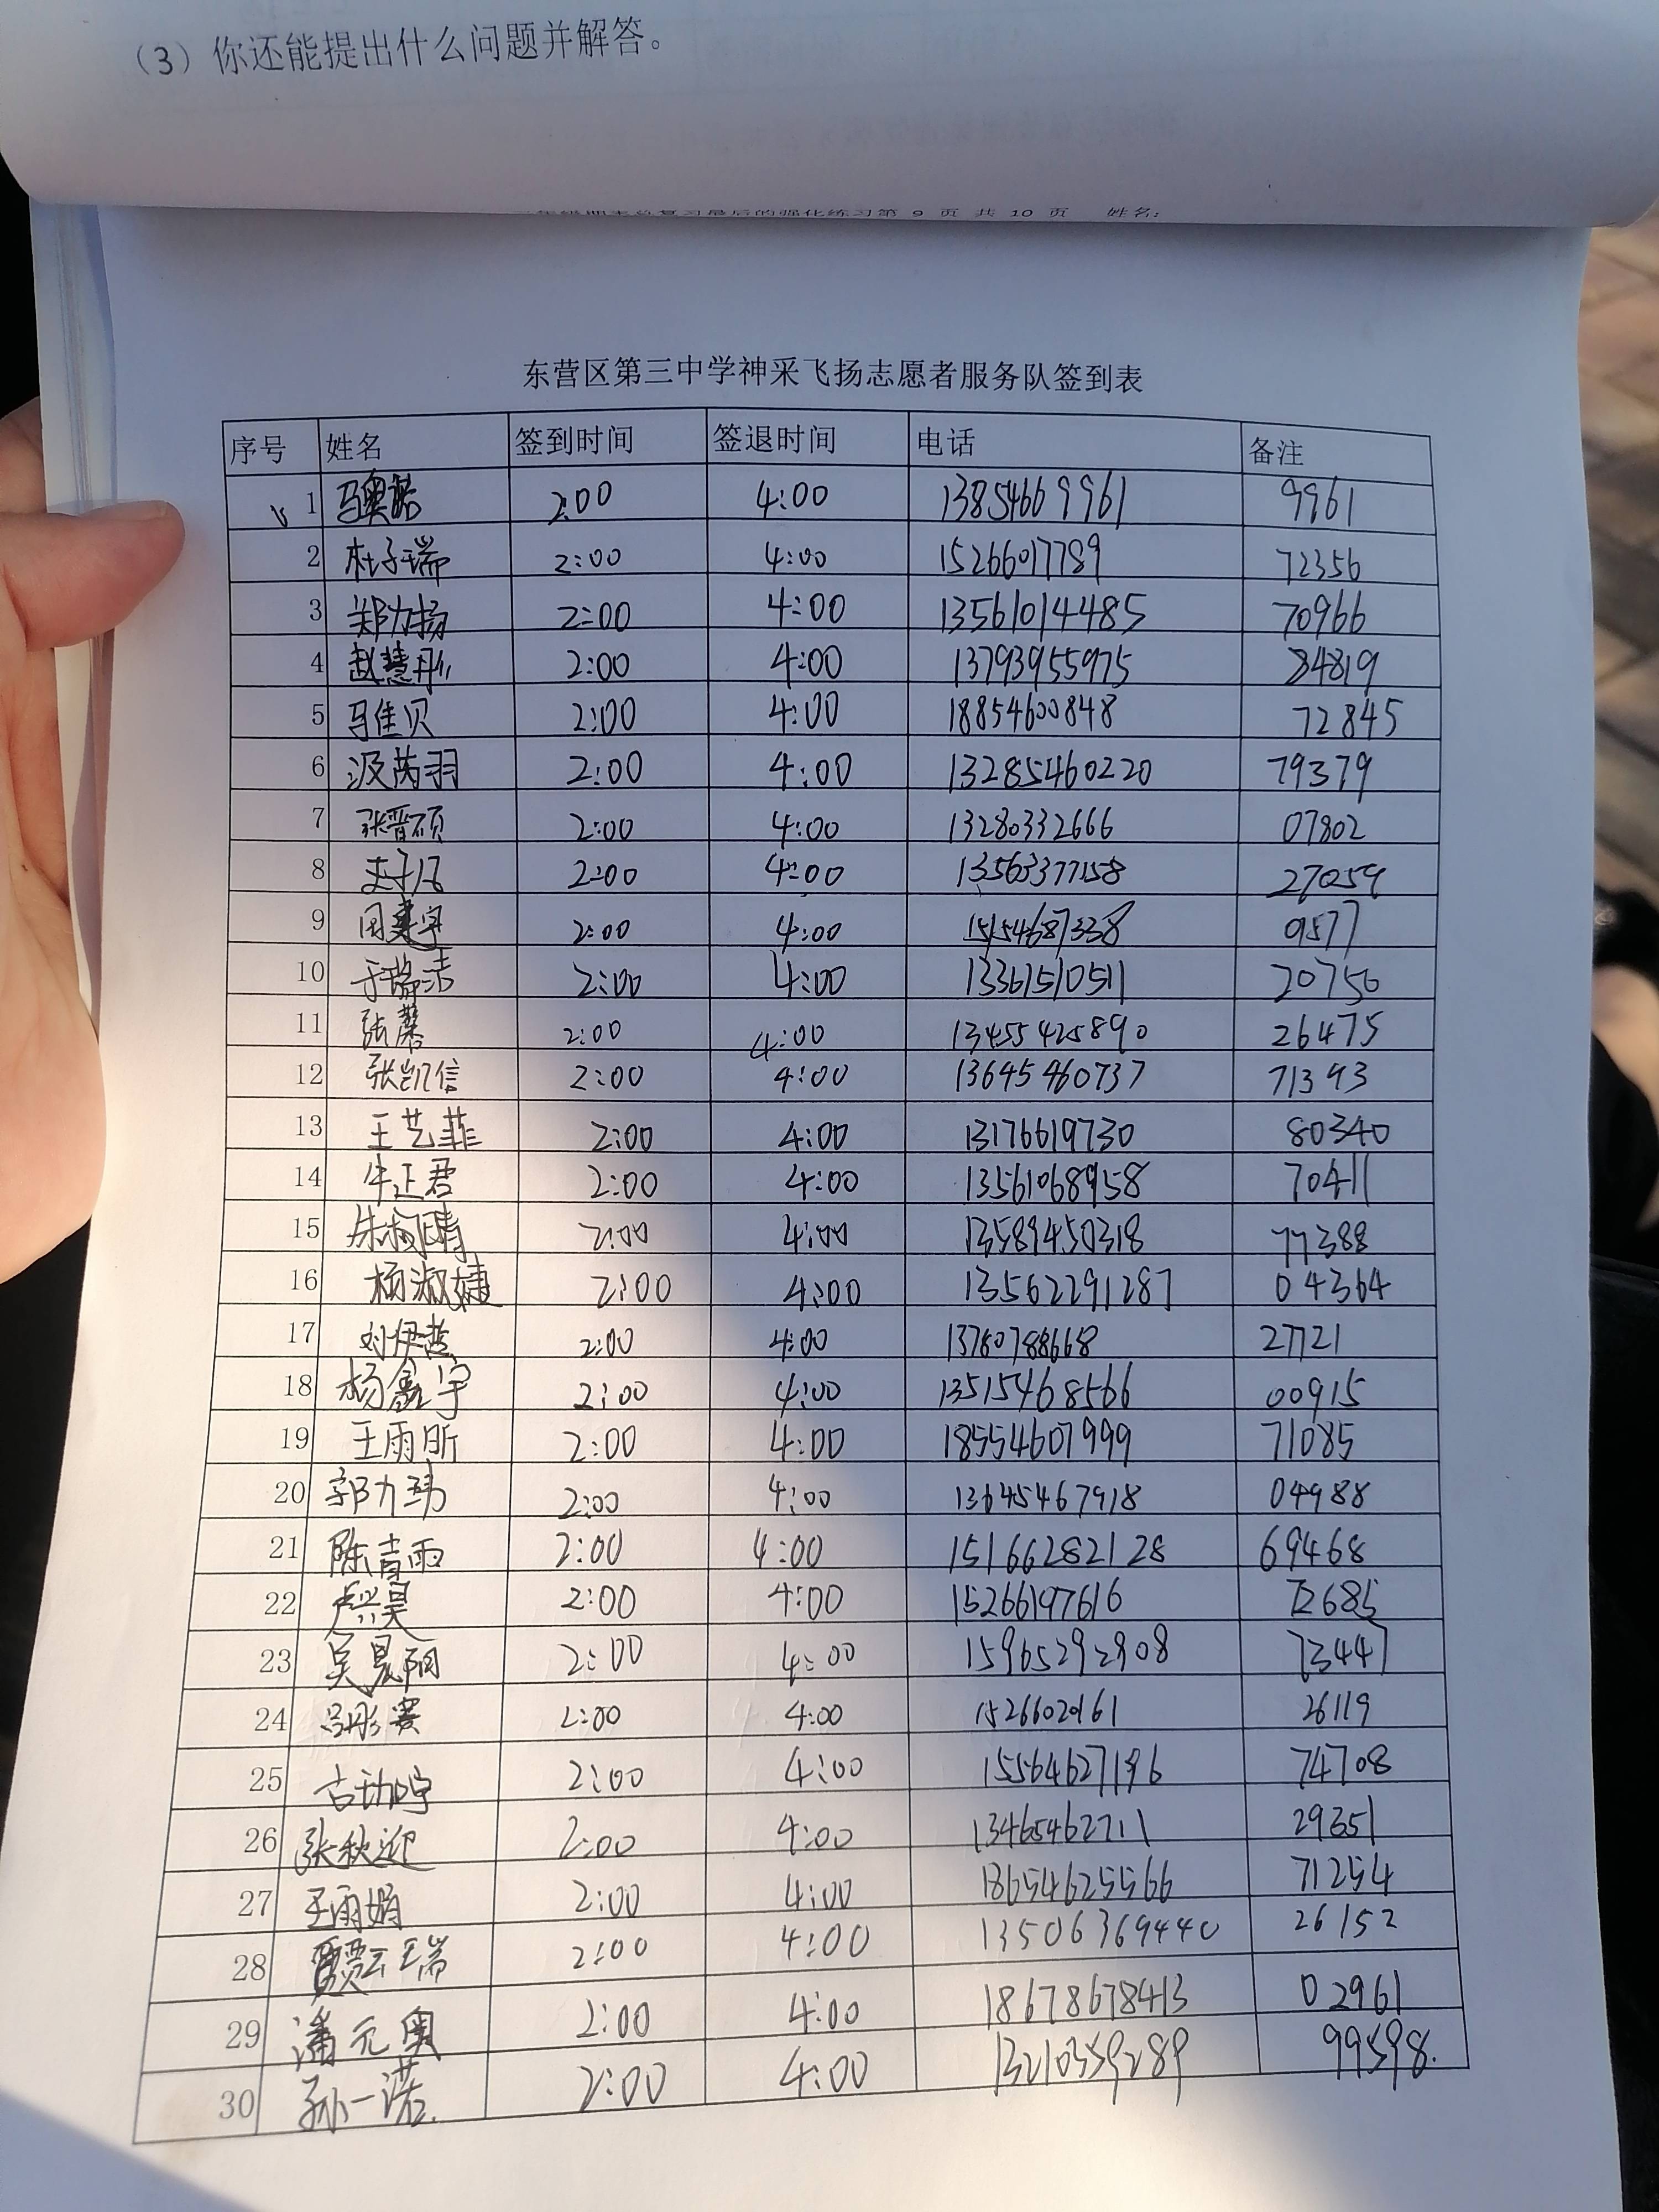 （3）你还能提出什么问题并解答。
第 9 页 共 10 页 姓名:
东营区第三中学神采飞扬志愿者服务队签到表
序号 姓名 签到时间 签退时间 电话 备注
1 马奥 2:00 4:00 13854669961 9961
2 杜子瑞 2:00 4:00 15266017789 72356
3 郑力扬 2:00 4:00 13561014485 70966
4 赵慧彤 2:00 4:00 13793955975 84819
5 马佳贝 2:00 4:00 18854600848 72845
6 汲芮羽 2:00 4:00 13285460220 79379
7 张晋硕 2:00 4:00 13280332666 07802
8 2:00 4:00 13563377158 27059
9 田建宇 2:00 4:00 15154687338 9577
10 于瑞洁 2:00 4:00 13361510511 20756
11 张馨 2:00 4:00 13455425890 26475
12 张凯信 2:00 4:00 13645460737 71393
13 王艺菲 2:00 4:00 13176619730 80340
14 牛正君 2:00 4:00 13561068958 70411
15 2:00 4:00 13589450318 77388
16 杨淑婕 2:00 4:00 13562291287 04364
17 刘伊 2:00 4:00 13780788668 27721
18 杨鑫宇 2:00 4:00 13515468566 00915
19 王雨昕 2:00 4:00 18554607999 71085
20 郭力玮 2:00 4:00 13645467918 04988
21 陈青雨 2:00 4:00 15166282128 69468
22 卢兴昊 2:00 4:00 15266197616 72685
23 吴晨阳 2:00 4:00 15965292908 73447
24 2:00 4:00 26119
25 2:00 4:00 15564627196 74708
26 张秋迎 2:00 4:00 13465462711 29351
27 王雨娟 2:00 4:00 18654625566 71254
28 贾云瑞 2:00 4:00 13506369440 26152
29 潘元奥 2:00 4:00 18678678413 02961
30 孙一诺 2:00 4:00 13210359289 99598.